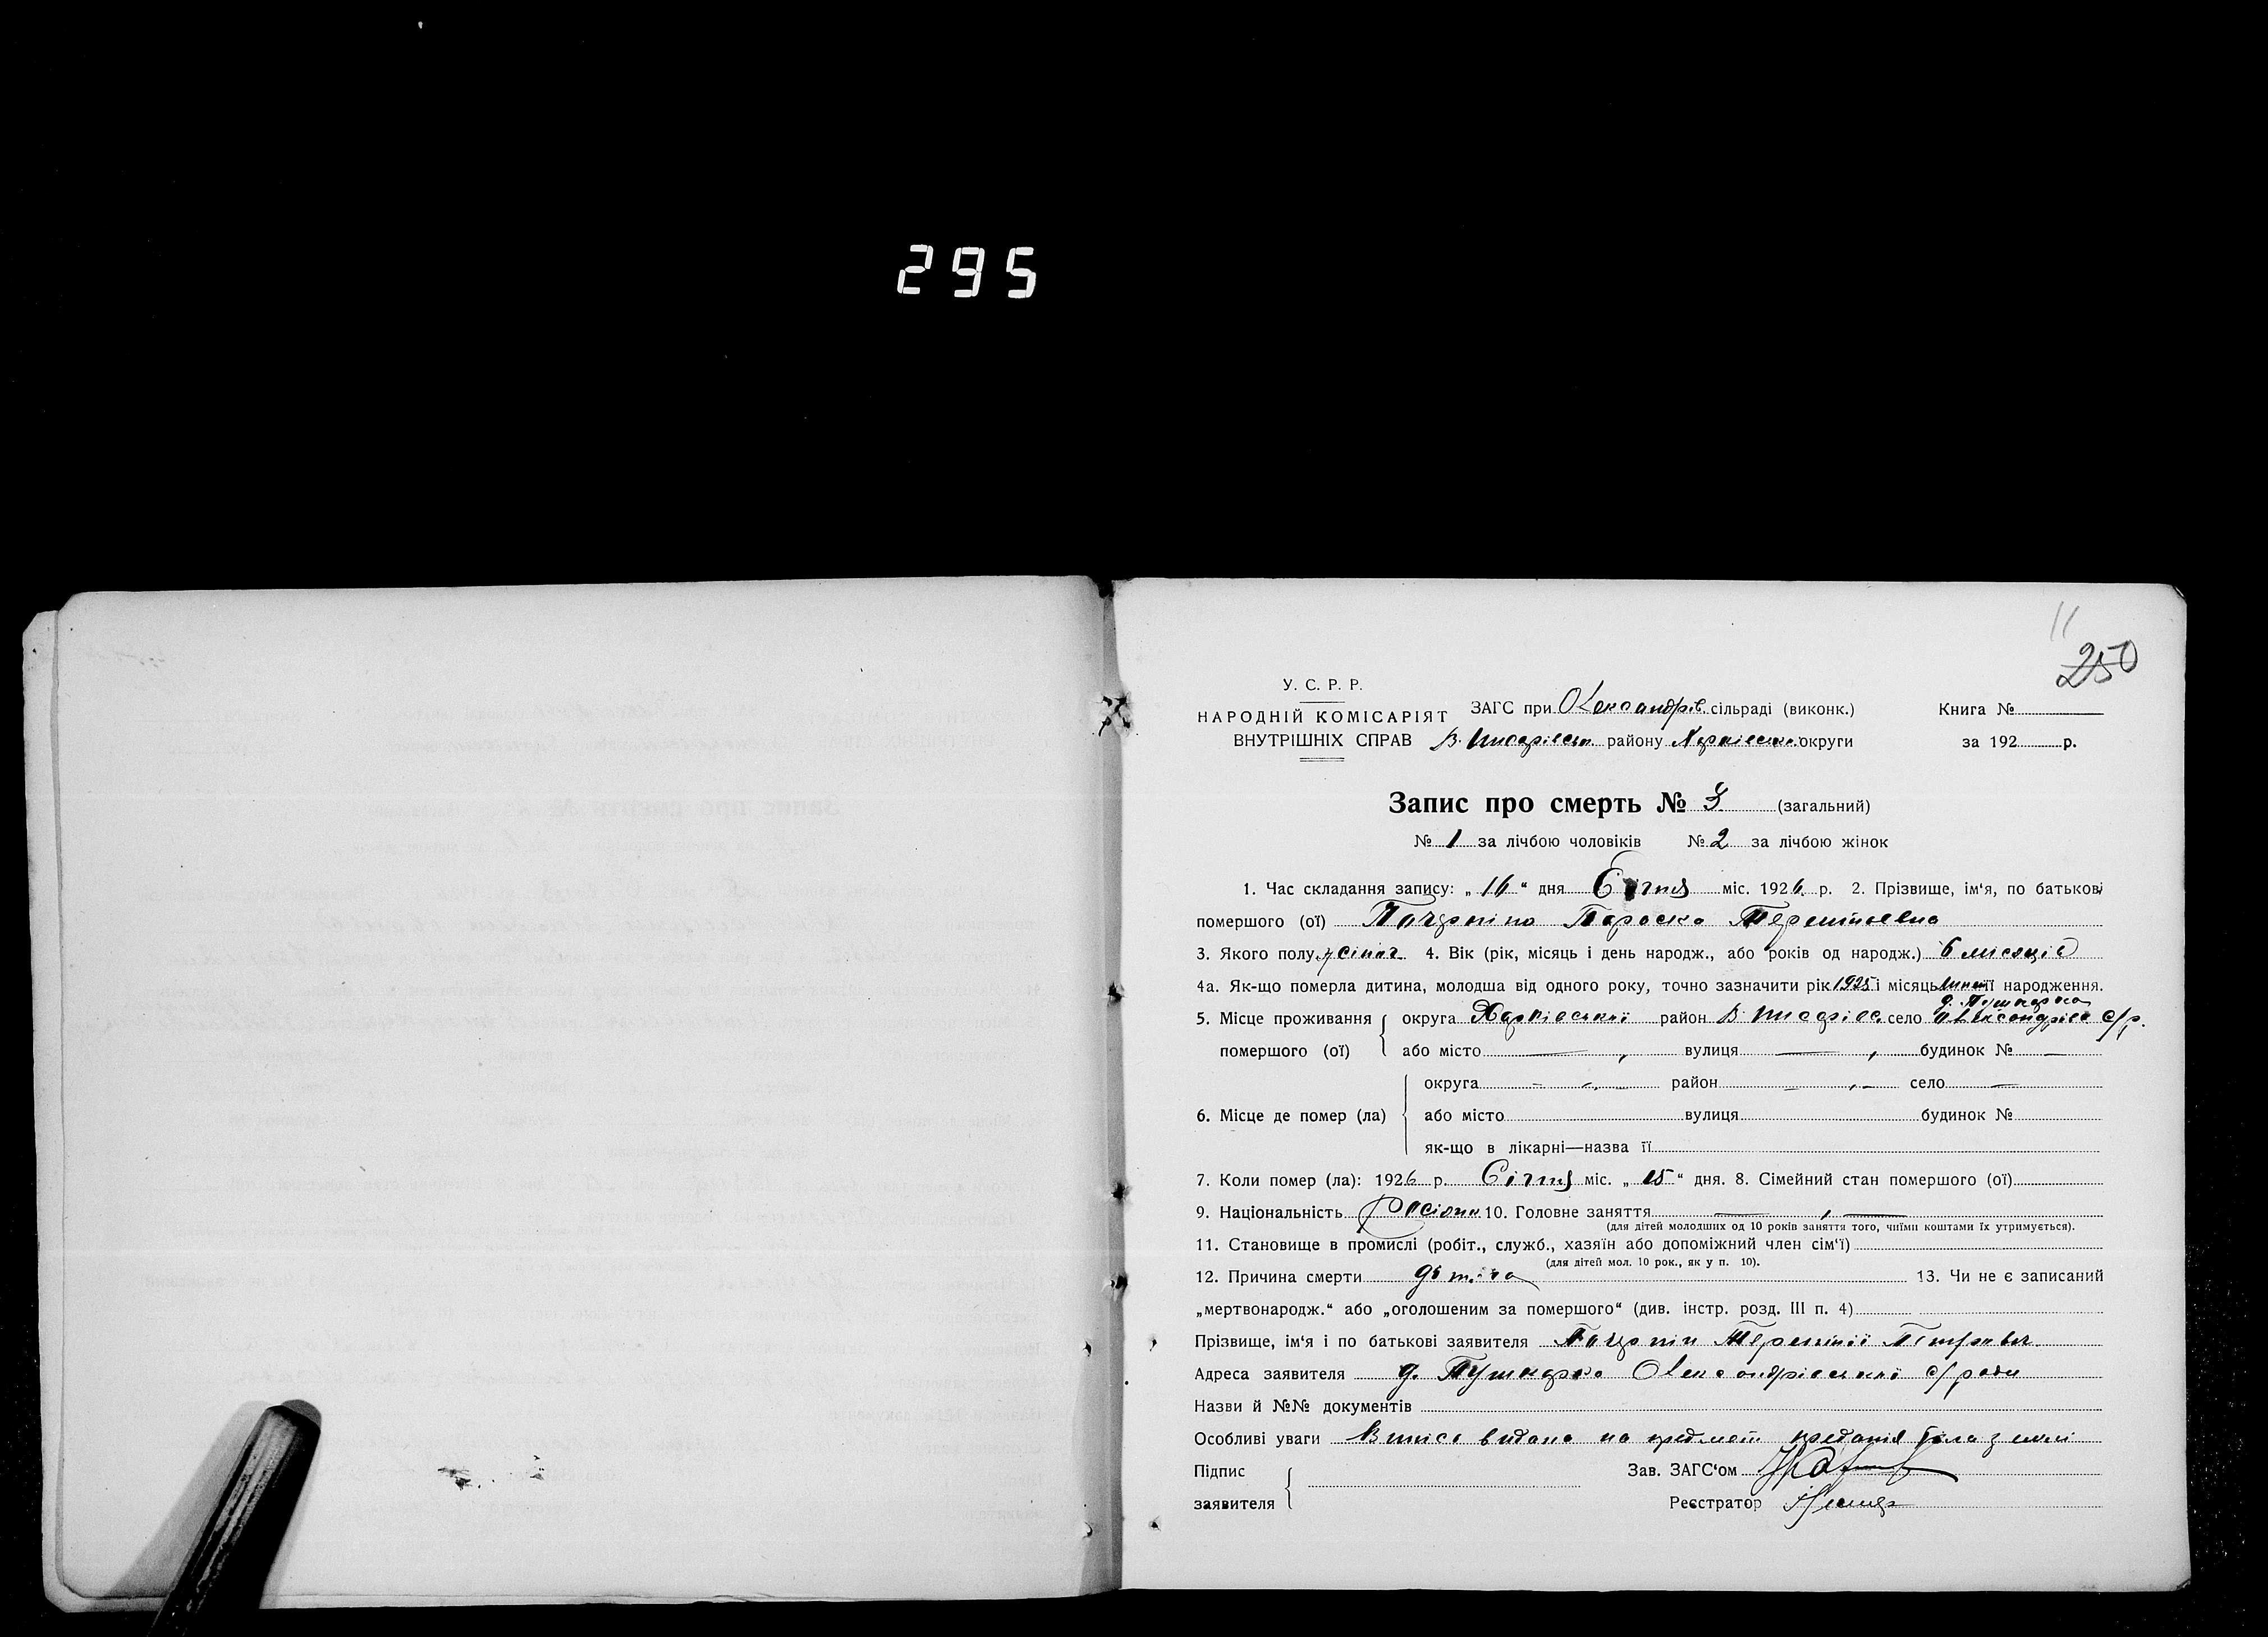 295
11
250
У. С. Р. Р.
НАРОДНІЙ КОМІСАРІЯТ
ВНУТРІШНІХ СПРАВ
ЗАГС при Олександрів. сільраді (виконк.)
В. Писарівськ. району Харківської округи
Книга №
за 192 р.
Запис про смерть № 3 (загальний)
№ 1 за лічбою чоловіків № 2 за лічбою жінок
1. Час складання запису: „16“ дня Січня міс. 1926 р. 2. Прізвище, ім‘я, по батькові
помершого (ої) Параска Терентьевна
3. Якого полу жіноч. 4. Вік (рік, місяць і день народж., або років од народж.) 6 місяців
4а. Як-що померла дитина, молодша від одного року, точно зазначити рік 1925 і місяць її народження.
5. Місце проживання помершого (ої) округа Харківської район В. Писарівс. село д. Пушкарка Олександрівс с/р.
або місто — , вулиця — , будинок № —
6. Місце де помер (ла) округа — „ — район — „ — село —
або місто вулиця будинок №
як-що в лікарні—назва її
7. Коли помер (ла): 1926 р. Січня міс. „15“ дня. 8. Сімейний стан помершого (ої)
9. Національність Росіянка 10. Головне заняття — , —
(для дітей молодших од 10 років заняття того, чиїми коштами їх утримується).
11. Становище в промислі (робіт., служб., хазяїн або допоміжний член сім‘ї)
(для дітей мол. 10 рок., як у п. 10).
12. Причина смерти 13. Чи не є записаний
„мертвонародж.“ або „оголошеним за помершого“ (див. інстр. розд. III п. 4)
Прізвище, ім‘я і по батькові заявителя Терентій Петрович
Адреса заявителя д. Пушкарка Олександрівської с/ради
Назви й №№ документів
Особливі уваги Випись видана на предмет предания тіла землі
Підпис заявителя
Зав. ЗАГС‘ом
Реєстратор